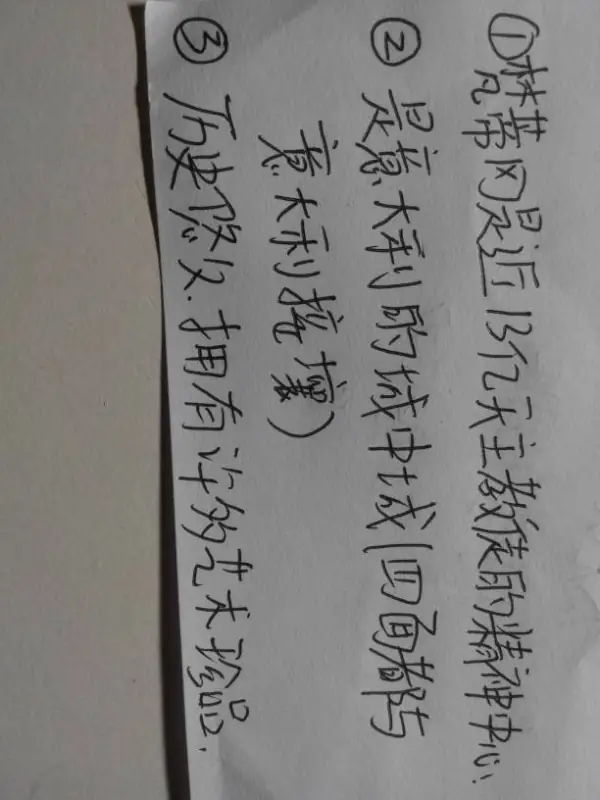 ①梵蒂冈是近13亿天主教徒的精神中心.
②是意大利的城中城(四面都与
意大利接壤)
③历史悠久.拥有许多艺术珍品.